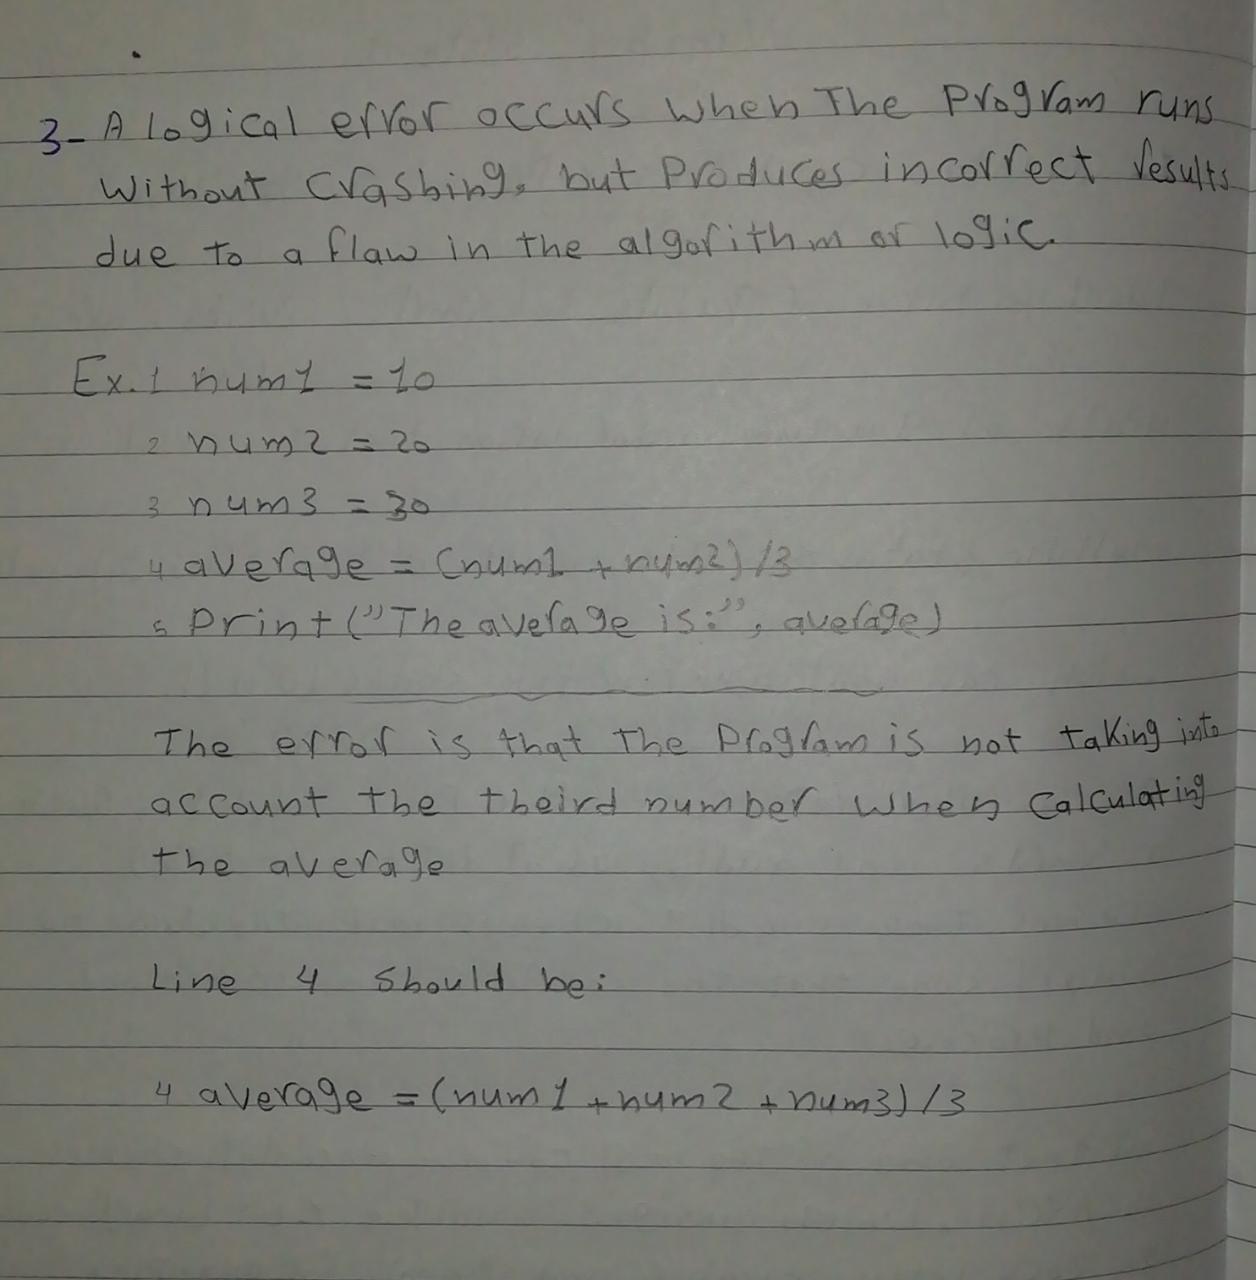 3- A logical error occurs when The program runs
without crashing, but produces incorrect results
due to a flaw in the algorithm or logic.
Ex. 1 num1 = 10
2 num2 = 20
3 num3 = 30
4 average = (num1 + num2) / 3
5 Print ("The average is:", average)
The error is that the program is not taking into
account the theird number when calculating
the average
Line 4 should be:
4 average = (num1 + num2 + num3) / 3